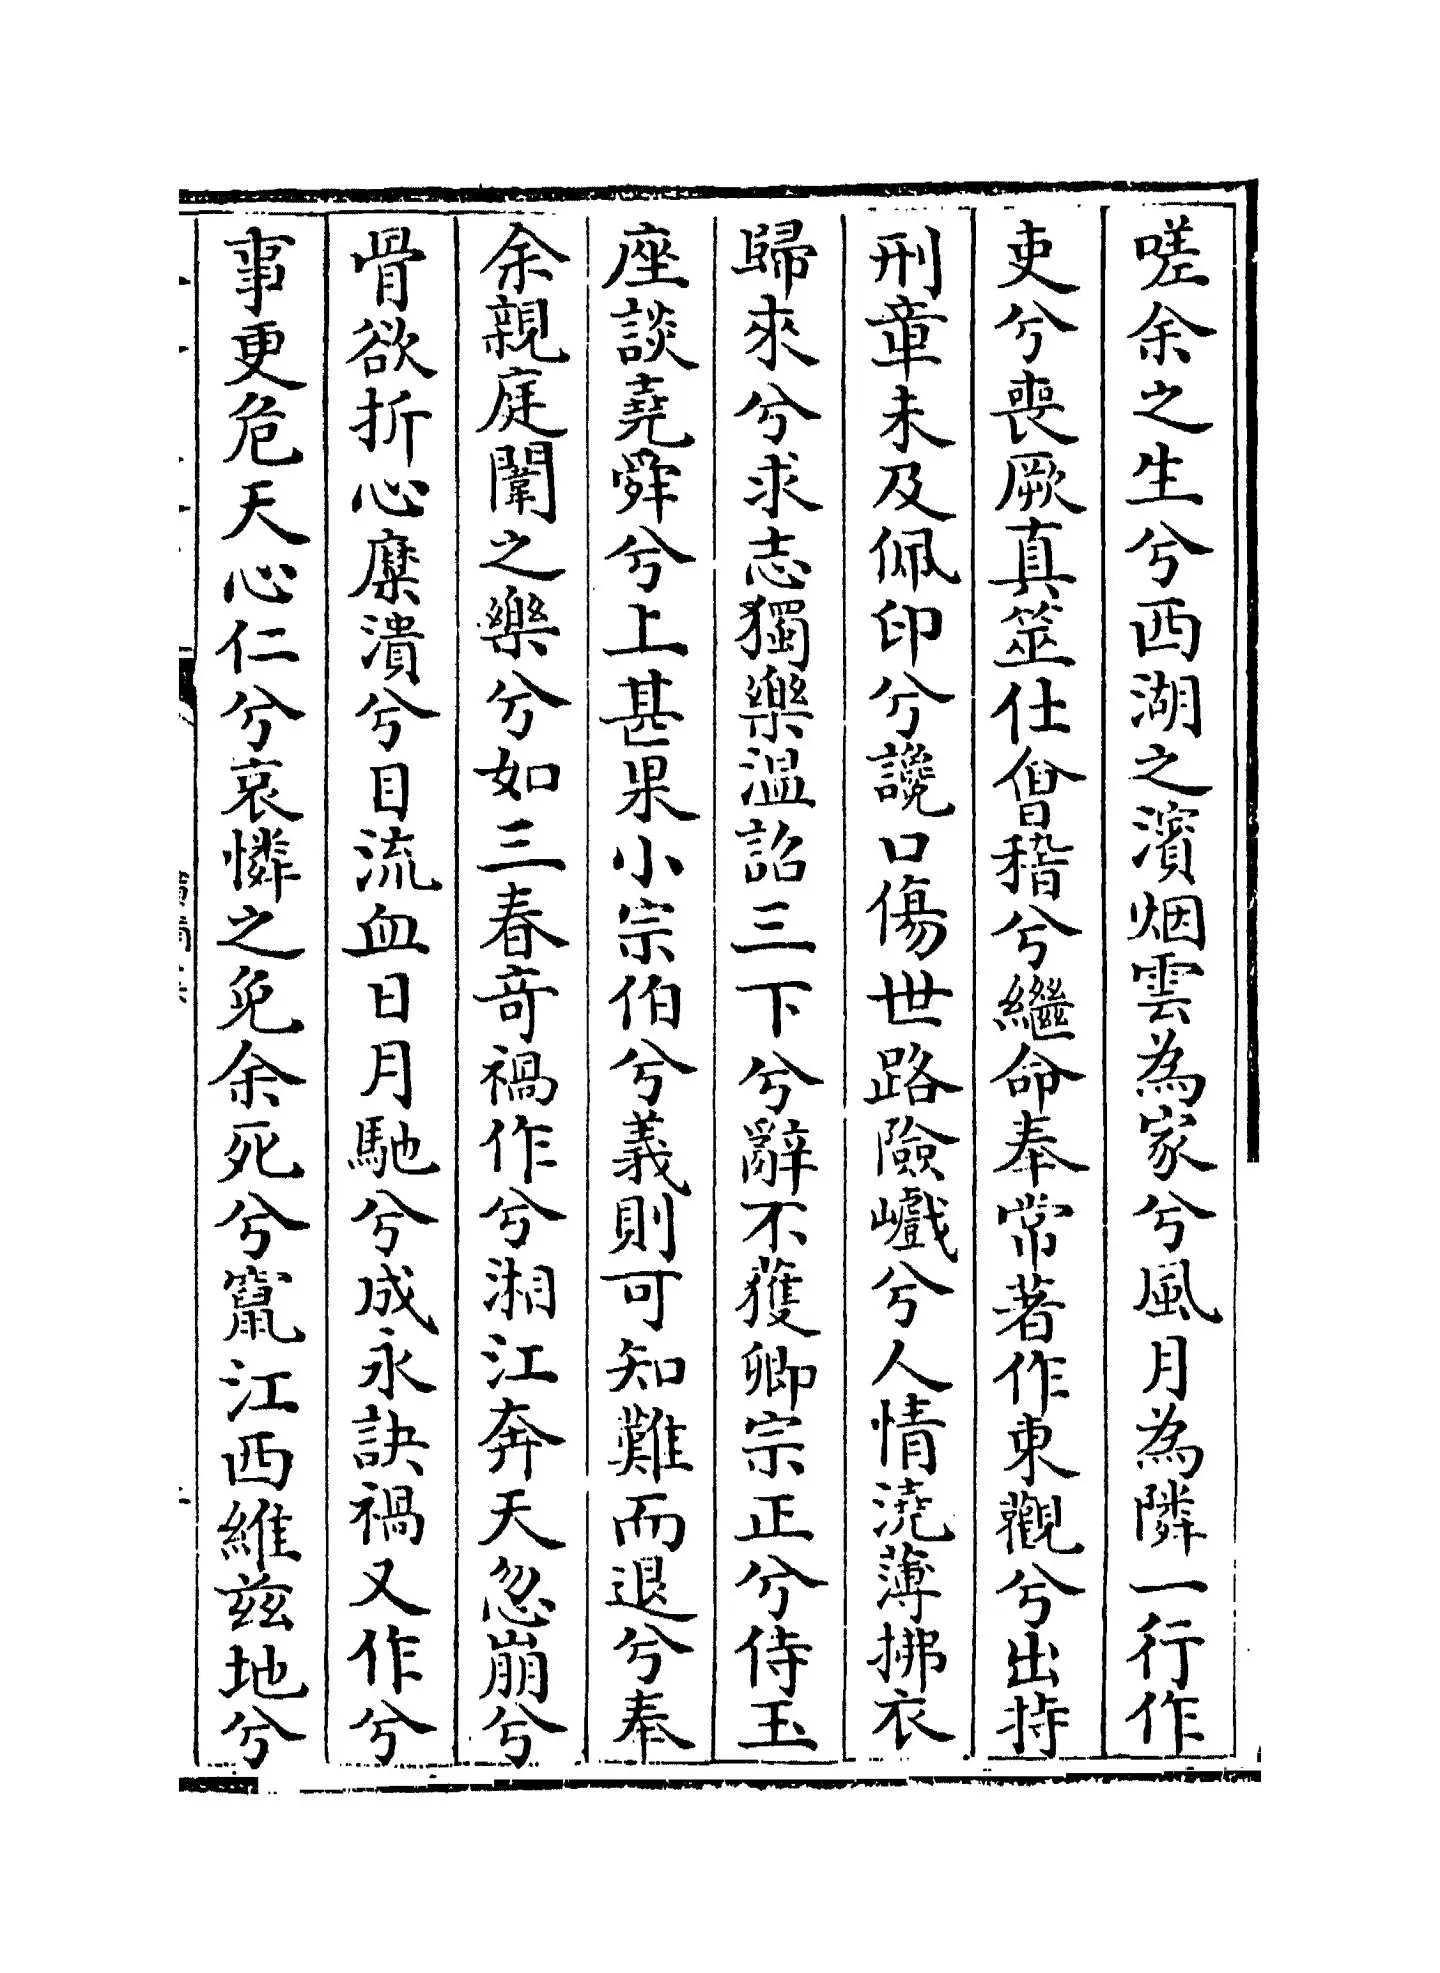 嗟余之生兮西湖之濱烟雲為家兮風月為隣一行作
吏兮喪厥真筮仕㑹稽兮繼命奉常著作東觀兮出持
刑章未及佩印兮讒口傷世路險巇兮人情澆薄拂衣
歸來兮求志獨樂温詔三下兮辭不獲卿宗正兮侍玉
座談堯舜兮上甚果小宗伯兮義則可知難而退兮奉
余親庭闈之樂兮如三春竒禍作兮湘江奔天忽崩兮
骨欲折心糜潰兮目流血日月馳兮成永訣禍又作兮
事更危天心仁兮哀憐之免余死兮竄江西維兹地兮